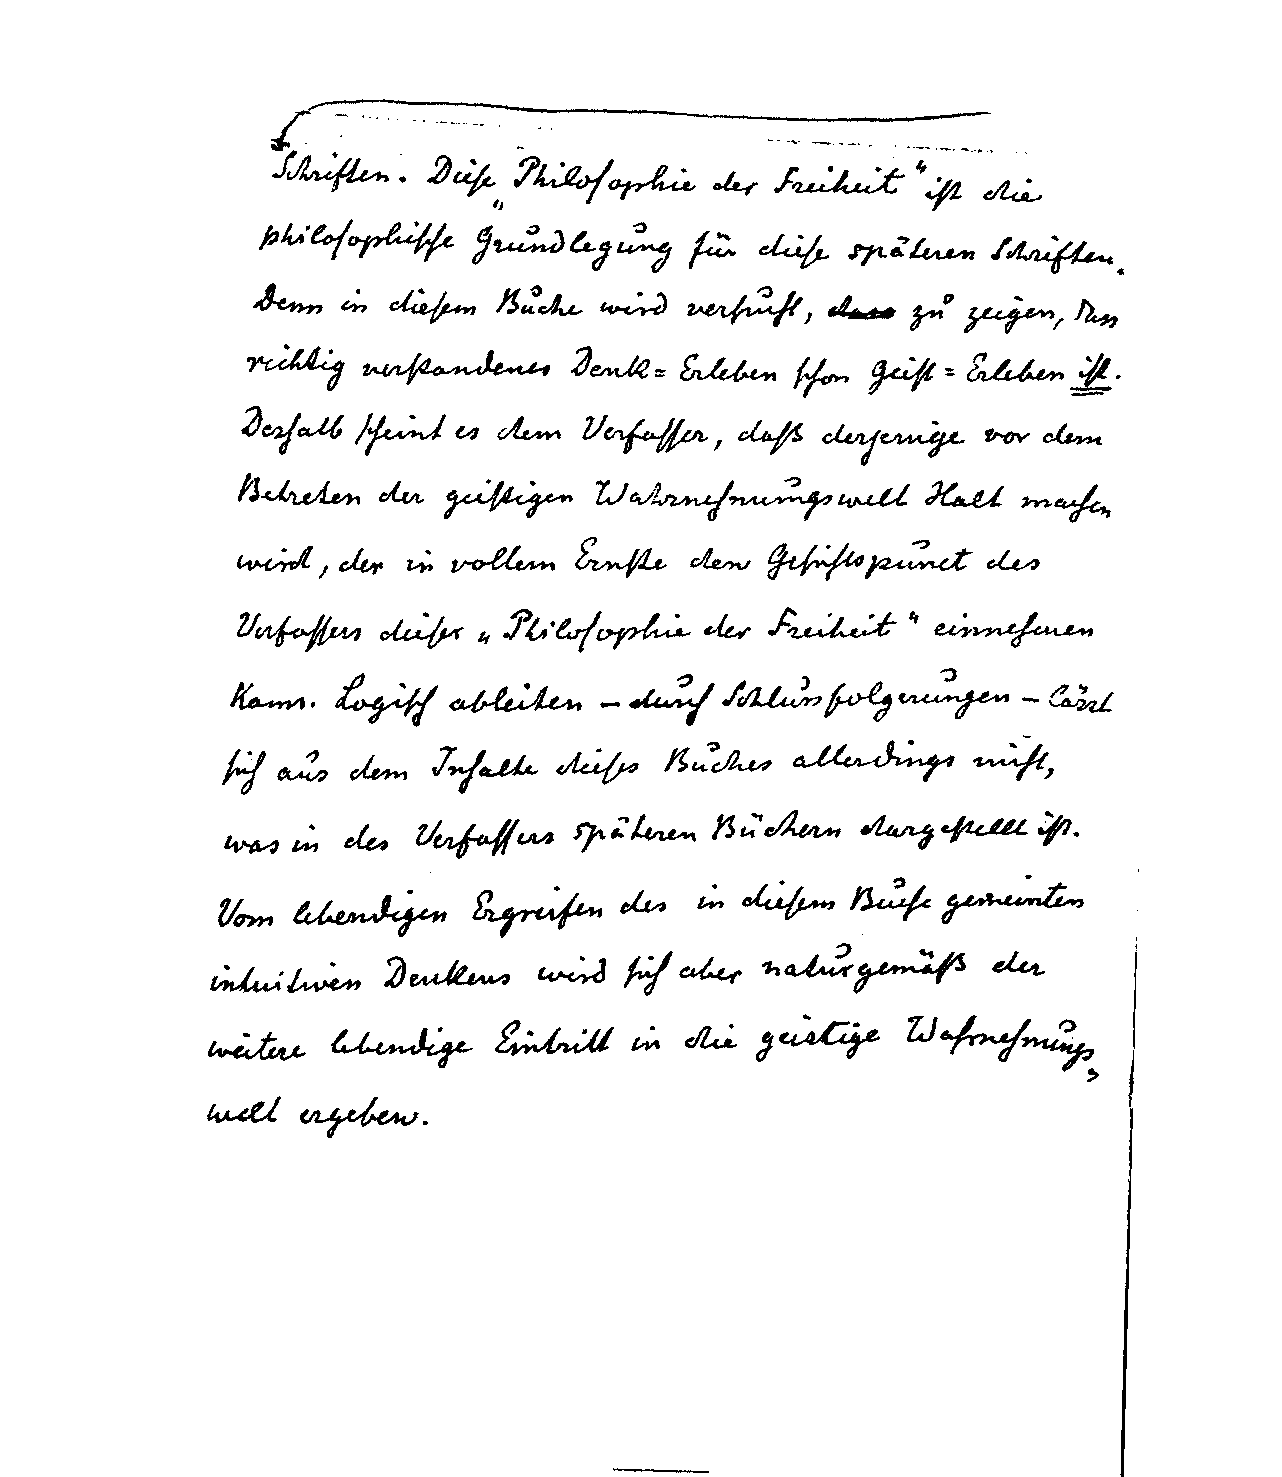 Schriften. Diese „Philosophie der Freiheit“ ist die
philosophische Grundlegung für diese späteren Schriften.
Denn in diesem Buche wird versucht, dass zu zeigen, dass
richtig verstandenes Denk=Erleben schon Geist=Erleben ist.
Deshalb scheint es dem Verfasser, daß derjenige vor dem
Betreten der geistigen Wahrnehmungswelt Halt machen
wird, der in vollem Ernste den Gesichtspunct des
Verfassers dieser „Philosophie der Freiheit“ einnehmen
kann. Logisch ableiten – durch Schlussfolgerungen – lässt
sich aus dem Inhalte dieses Buches allerdings nicht,
was in des Verfassers späteren Büchern dargestellt ist.
Vom lebendigen Ergreifen des in diesem Buche gemeinten
intuitiven Denkens wird sich aber naturgemäß der
weitere lebendige Eintritt in die geistige Wahrnehmungs-
welt ergeben.